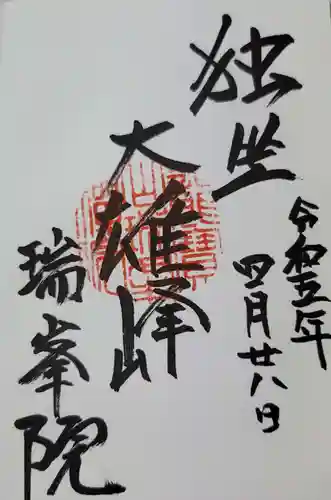 独坐
大雄峰
瑞峯院
令和五年
四月廿八日